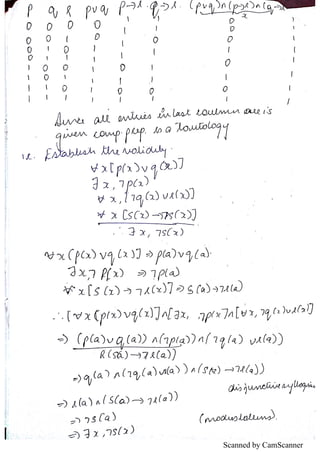 p q r p∨q p→r q→r (p∨q)∧(p→r)∧(q→r)
0 0 0 0 1 1 0
0 0 1 0 1 1 0
0 1 0
0 1 1
1 0 0
1 0 1
1 1 0
1 1 1
Since all entries in last coulmn are is
given comp. prep. is a Tautology
Establish the validity
∀x[p(x)∨q(x)]
∃x, ¬p(x)
∀x, [¬q(x)∨r(x)]
∀x [s(x)→¬r(x)]
∴ ∃x, ¬s(x)
∀x(p(x)∨q(x)] ⇒ p(a)∨q(a)
∃x,¬p(x) ⇒ ¬p(a)
∀x[s(x)→¬r(x)] ⇒ s(a)→¬r(a)
∴[∀x(p(x)∨q(x)]∧[∃x, ¬p(x)∧[∀x,¬q(x)∨r(x)]
⇒ (p(a)∨q(a))∧(¬p(a))∧(¬q(a)∨r(a))
(s(a)→¬r(a))
⇒q(a)∧(¬q(a)∨r(a))∧(s(a)→¬r(a))
disjunctive syllogism
⇒ r(a)∧(s(a)→¬r(a))
⇒ ¬s(a) (modus tolens)
⇒ ∃x,¬s(x)
Scanned by CamScanner